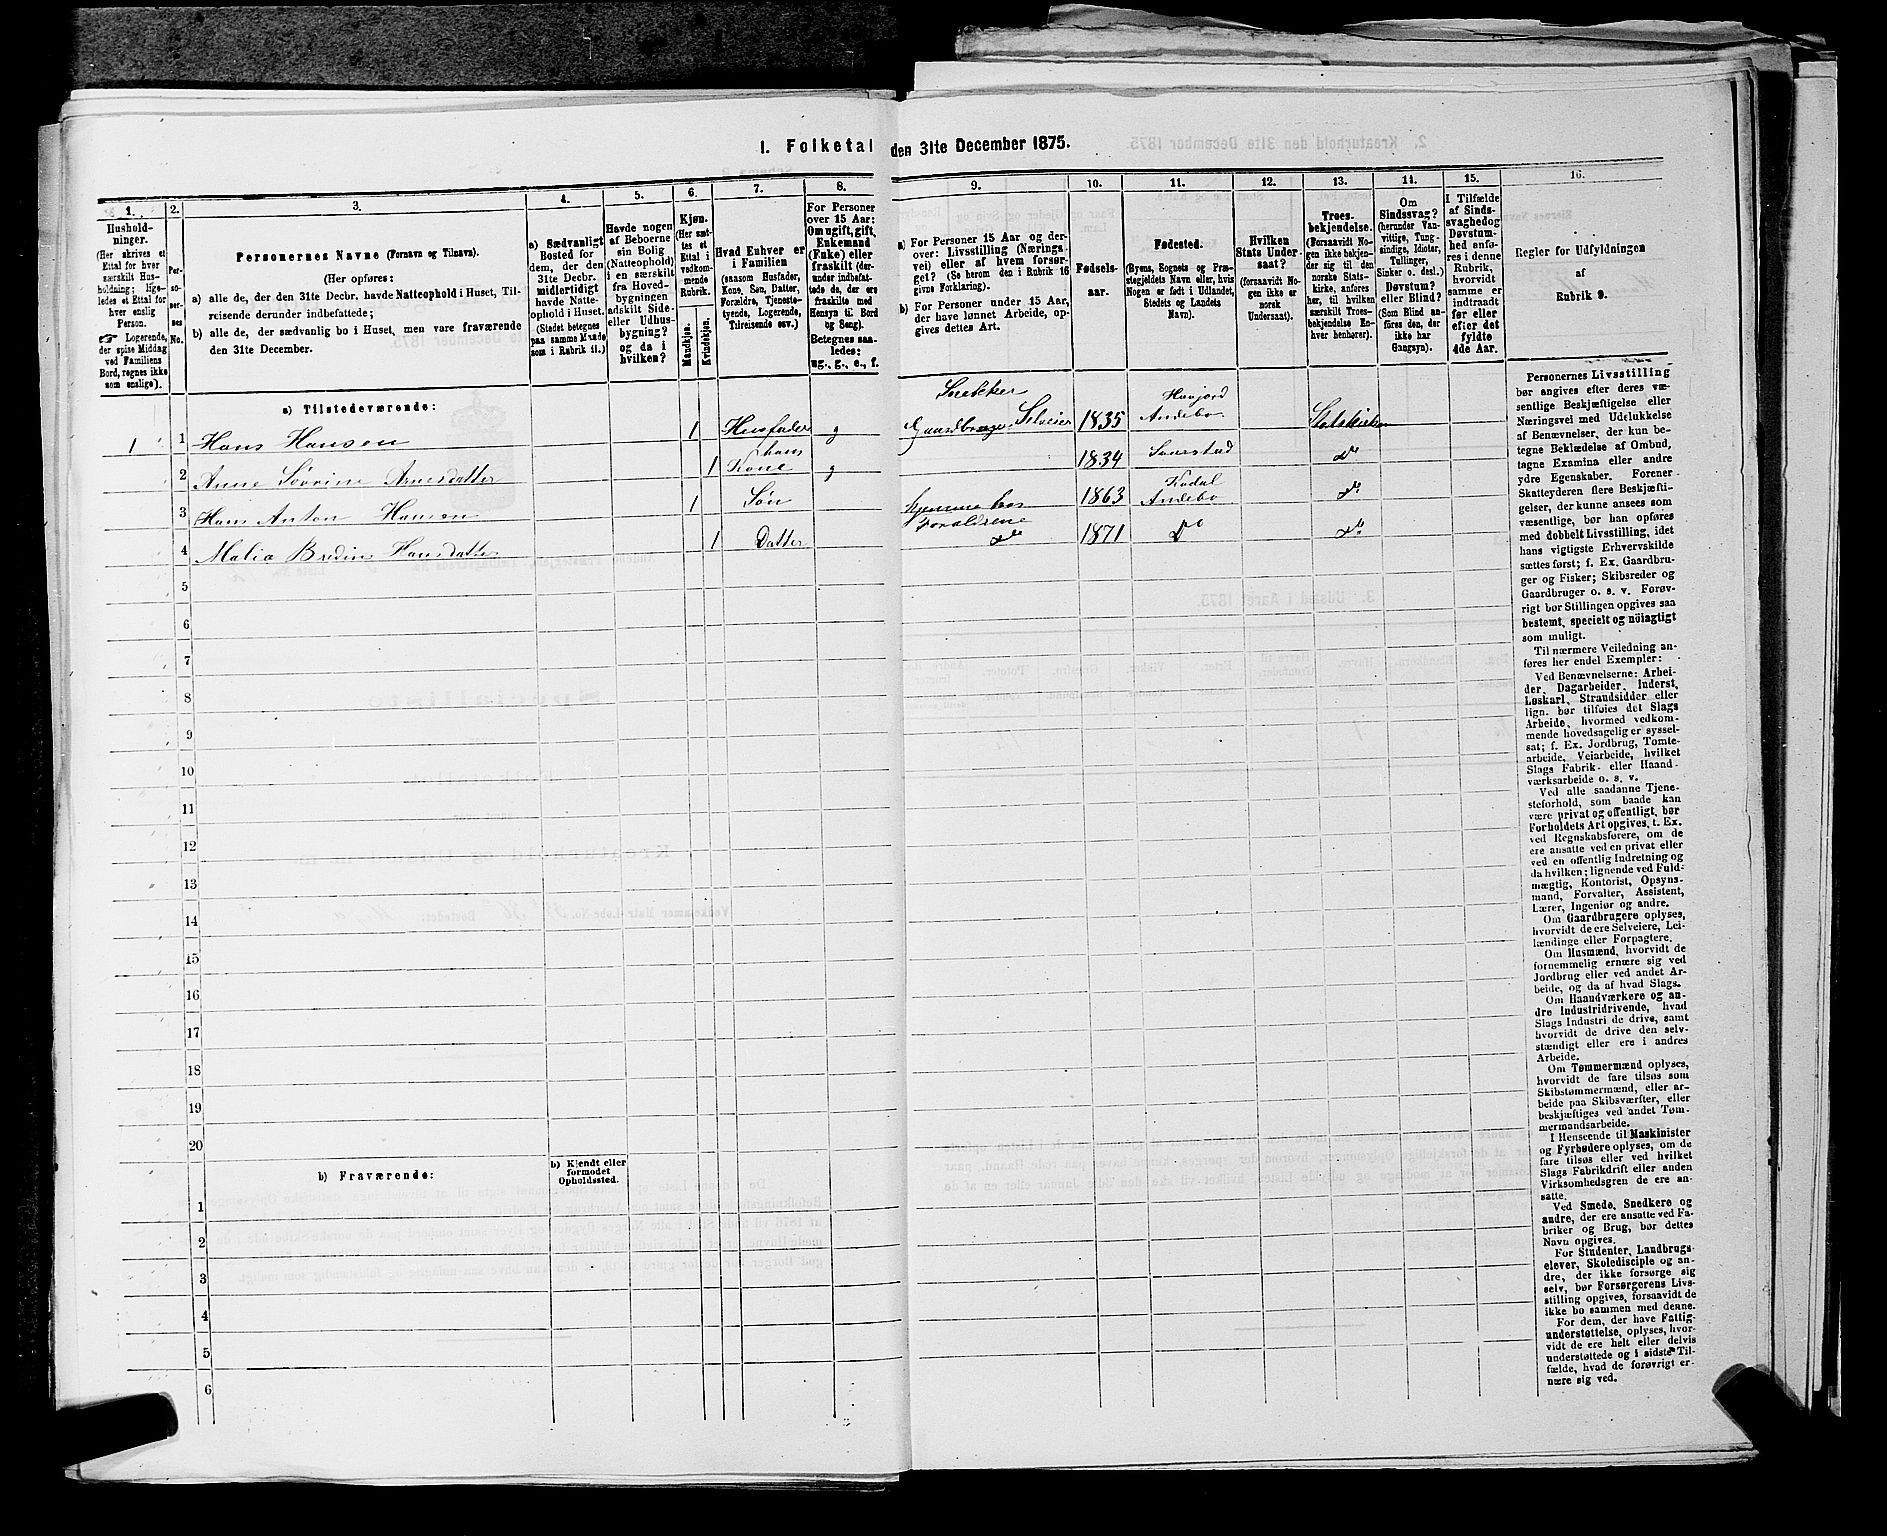 I. Folketal den 31te December 1875.
1.
Hushold-
ninger.
(Her skrives et
Ettal for hver
særskilt Hus-
holdning; lige-
ledes et Ettal for
hver enslig
Person.
Logerende,
der spise Middag
ved Familiens
Bord, regnes ikke
som enslige).
2.
Per-
so-
ner-
nes
No.
3.
Personernes Navne (Fornavn og Tilnavn).
(Her opføres:
a) alle de, der den 31te Decbr. havde Natteophold i Huset, Til-
reisende derunder indbefattede;
b) alle de, der sædvanlig bo i Huset, men vare fraværende
den 31te December.
4.
a) Sædvanligt
Bosted for
dem, der den
31te Decbr.
midlertidigt
havde Natte-
ophold i Huset.
(Stedet betegnes
paa samme Maade
som i Rubrik 11.)
5.
Havde nogen
af Beboerne
sin Bolig
(Natteophold)
i en særskilt
fra Hoved-
bygningen
adskilt Side-
eller Udhus-
bygning?
og da i
hvilken?
6.
Kjøn.
(Her sæt-
tes et
Ettal i
vedkom-
mende
Rubrik.
Mandkjøn.
Kvindekjøn.
7.
Hvad Enhver er
i Familien
(saasom Husfader,
Kone, Søn, Datter,
Forældre, Tjeneste-
tyende, Logerende,
Tilreisende osv.)
8.
For Personer
over 15 Aar:
Om ugift, gift,
Enkemand
(Enke) eller
fraskilt (der-
under indbefat-
tede de, der ere
fraskilte med
Hensyn til Bord
og Seng).
Betegnes saa-
ledes:
ug., g., e., f.
9.
a) For Personer 15 Aar og der-
over: Livsstilling (Nærings-
vei) eller af hvem forsør-
get? (Se herom den i Rubrik 16
givne Forklaring).
b) For Personer under 15 Aar,
der have lønnet Arbeide, op-
gives dettes Art.
10.
Fødsels-
aar.
11.
Fødested.
(Byens, Sognets og Præ-
stegjeldets Navn eller, hvis
Nogen er født i Udlandet,
Stedets og Landets
Navn).
12.
Hvilken
Stats Under-
saat?
(forsaavidt No-
gen ikke er
norsk
Undersaat).
13.
Troes-
bekjendelse.
(Forsaavidt No-
gen ikke bekjen-
der sig til den
norske Stats-
kirke, anføres
her, til hvilken
særskilt Troes-
bekjendelse En-
hver henhører).
14.
Om
Sindssvag?
(herunder Van-
vittige, Tung-
sindige, Idioter,
Tullinger,
Sinker o. desl.)
Døvstum?
eller Blind?
(Som Blind an-
føres den, der
ikke har
Gangsyn).
15.
I Tilfælde
af Sinds-
svaghed og
Døvstum-
hed anfø-
res i denne
Rubrik,
hvorvidt
samme er
indtraadt
før eller
efter det
fyldte
4de Aar.
16.
Regler for Udfyldningen
af
Rubrik 9.
a) Tilstedeværende:
1 1 Hans Hansen 1 Husfader g Snekker Gaardbruger Selveier 1835 Andebo Statskirken
2 Anne Sørine Arnesdatter 1 hans Kone g 1834 d°
3 Hans Anton Hansen 1 Søn hjemme hos Forældrene 1863 Kodal Andebo d°
4 Malia Hansdatter 1 Datter d° 1871 D° d°
5
6
7
8
9
10
11
12
13
14
15
16
17
18
19
20
b) Fraværende:
b) Kjendt eller
formodet
Opholdssted.
1
2
3
4
5
6
Personernes Livsstilling
bør angives efter deres væ-
sentlige Beskjæftigelse eller
Næringsvei med Udelukkelse
af Benævnelser, der kun be-
tegne Beklædelse af Ombud,
tagne Examina eller andre
ydre Egenskaber. Forener
Skatteyderen flere Beskjæfti-
gelser, der kunne ansees som
væsentlige, bør han opføres
med dobbelt Livsstilling, idet
hans vigtigste Erhvervskilde
sættes først; f. Ex. Gaardbru-
ger og Fisker; Skibsreder og
Gaardbruger o. s. v. Forøv-
rigt bør Stillingen opgives saa
bestemt, specielt og nöiagtigt
som muligt.
Til nærmere Veiledning an-
føres her endel Exempler:
Ved Benævnelserne: Arbei-
der, Dagarbeider, Inderst,
Løskarl, Strandsidder eller
lign. bør tilføies det Slags
Arbeide, hvormed vedkom-
mende hovedsagelig er syssel-
sat; f. Ex. Jordbrug, Tomte-
arbeide, Veiarbeide, hvilket
Slags Fabrik- eller Haand-
værksarbeide o. s. v.
Ved alle saadanne Tjene-
steforhold, som baade kan
være privat og offentligt, bør
Forholdets Art opgives, t. Ex.
ved Regnskabsførere, om de
ere ansatte ved en privat eller
ved en offentlig Indretning og
da hvilken; lignende ved Fuld-
mægtig, Kontorist, Opsyns-
mand, Forvalter, Assistent,
Lærer, Ingeniør og andre.
Om Gaardbrugere oplyses,
hvorvidt de ere Selveiere, Lei-
lændinge eller Forpagtere.
Om Husmænd, hvorvidt de
fornemmelig ernære sig ved
Jordbrug eller ved andet Ar-
beide, og da af hvad Slags.
Om Haandværkere og an-
dre Industridrivende, hvad
Slags Industri de drive, samt
hvorvidt de drive den selv-
stændigt eller ere i andres
Arbeide.
Om Tømmermænd oplyses,
hvorvidt de fare tilsøs som
Skibstømmermænd, eller ar-
beide paa Skibsværfter, eller
beskjæftiges ved andet Tøm-
mermandsarbeide.
I Henseende til Maskinister
og Fyrbødere oplyses, om de
fare tilsøs eller ved hvilket
Slags Fabrikdrift eller anden
Virksomhedsgren de ere an-
satte.
Ved Smede, Snedkere og
andre, der ere ansatte ved Fa-
briker og Brug, bør dettes
Navn opgives.
For Studenter, Landbrugs-
elever, Skoledisciple og an-
dre, der ikke forsørge sig
selv, bør Forsørgerens Livs-
stilling opgives, forsaavidt de
ikke bo sammen med denne.
For dem, der have Fattig-
understøttelse, oplyses, hvor-
vidt de ere helt eller delvis
understøttede og i sidste Til-
fælde, hvad de forøvrigt er-
nære sig ved.